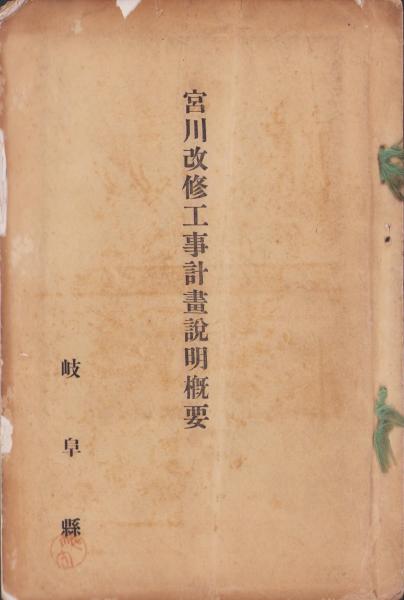 宮川改修工事計畫說明槪要
岐阜縣